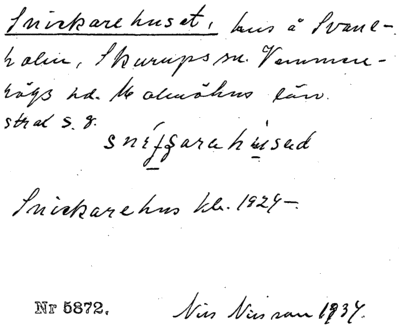 Snickarehuset, hus å Svane-
holm, Skurups sn. Vemmen-
högs hd. Malmöhus län.
strax s. g.
Snickarehus kb. 1924-.
Nr 5872. Nils Nilsson 1934.